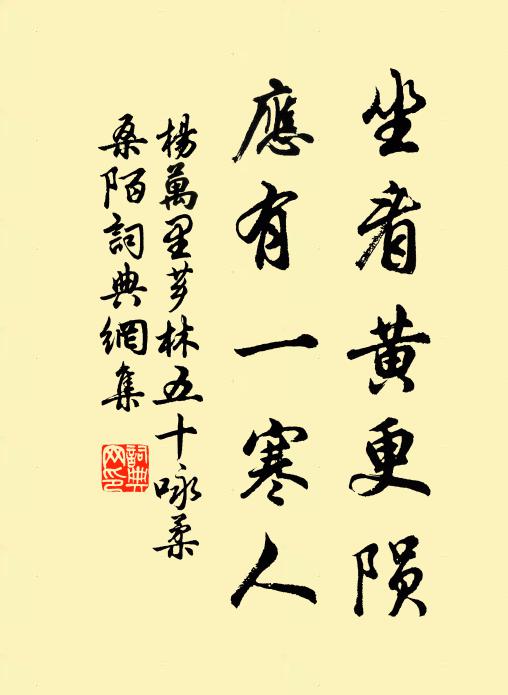 坐看黄更陨
應有一寒人
楊萬里芗林五十咏柔
桑陌詞典網集
詞典网印